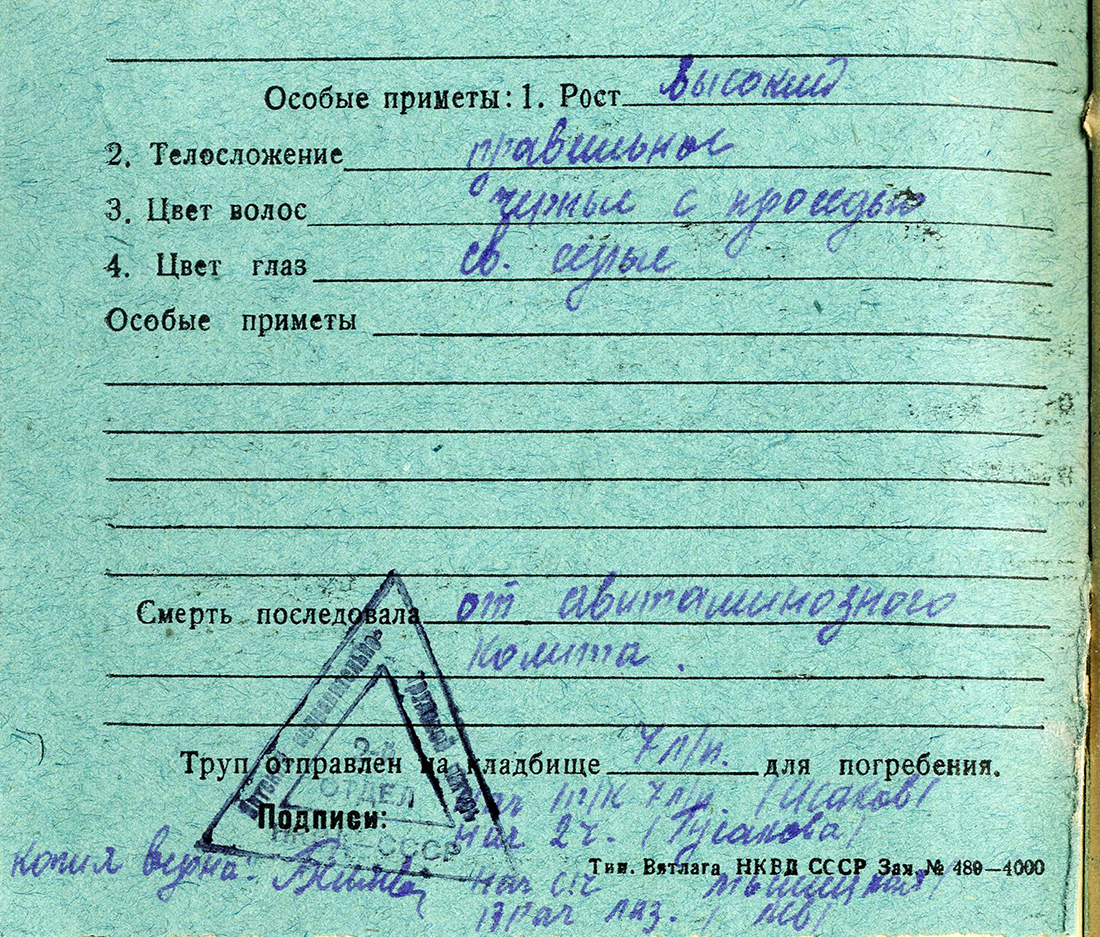 Особые приметы: 1. Рост высокий
2. Телосложение правильное
3. Цвет волос черные с проседью
4. Цвет глаз св. серые
Особые приметы
Смерть последовала от авитаминозного
колита.
Труп отправлен на кладбище 7 л/п. для погребения.
Нач 7 л/п. (Исаков)
Подписи:
Нач 2 ч. (Гусакова)
Тип. Вятлага НКВД СССР Зак. № 480—4000
Копия верна:
Нач
Врач лаз.
Вятский исправительно-
трудовой лагерь
2-й
ОТДЕЛ
НКВД—СССР